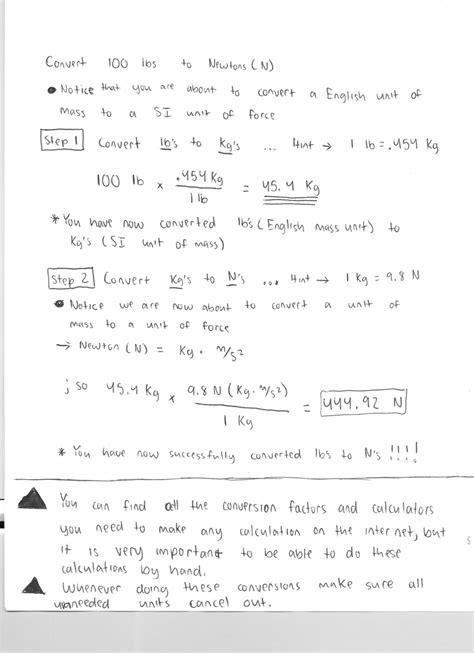 Convert 100 lbs to Newtons (N)
• Notice that you are about to convert a English unit of
mass to a SI unit of force
Step 1 Convert lb's to Kg's ... Hint → 1 lb = .454 Kg
100 lb × .454 Kg / 1 lb = 45.4 Kg
* You have now converted lb's (English mass unit) to
Kg's (SI unit of mass)
Step 2 Convert Kg's to N's ... Hint → 1 Kg = 9.8 N
• Notice we are now about to convert a unit of
mass to a unit of force
→ Newton (N) = Kg · m/s²
; so 45.4 Kg × 9.8 N (Kg · m/s²) / 1 Kg = 444.92 N
* You have now successfully converted lbs to N's !!!!
You can find all the conversion factors and calculators
you need to make any calculation on the internet, but
it is very important to be able to do these
calculations by hand.
Whenever doing these conversions make sure all
unneeded units cancel out.